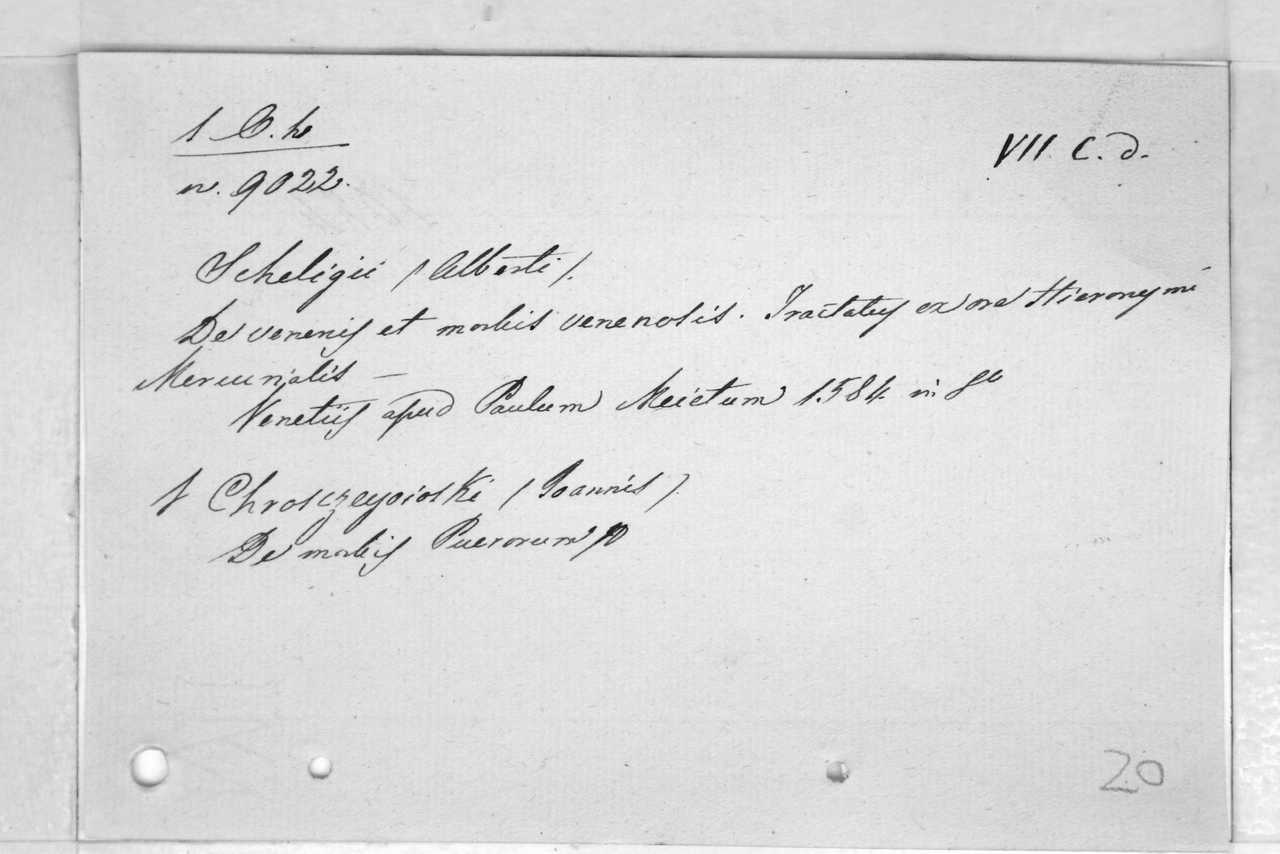 1 B. h
VII. C. d.
n. 9022.
Scheligii / Alberti /.
De venenis et morbis venenosis. Tractatus ex ore Hieronymi
Mercurialis —
Venetiis apud Paulum Meietum 1584. in 8o
Chrosczeyoioski / Joannis /.
De morbis Puerorum
20